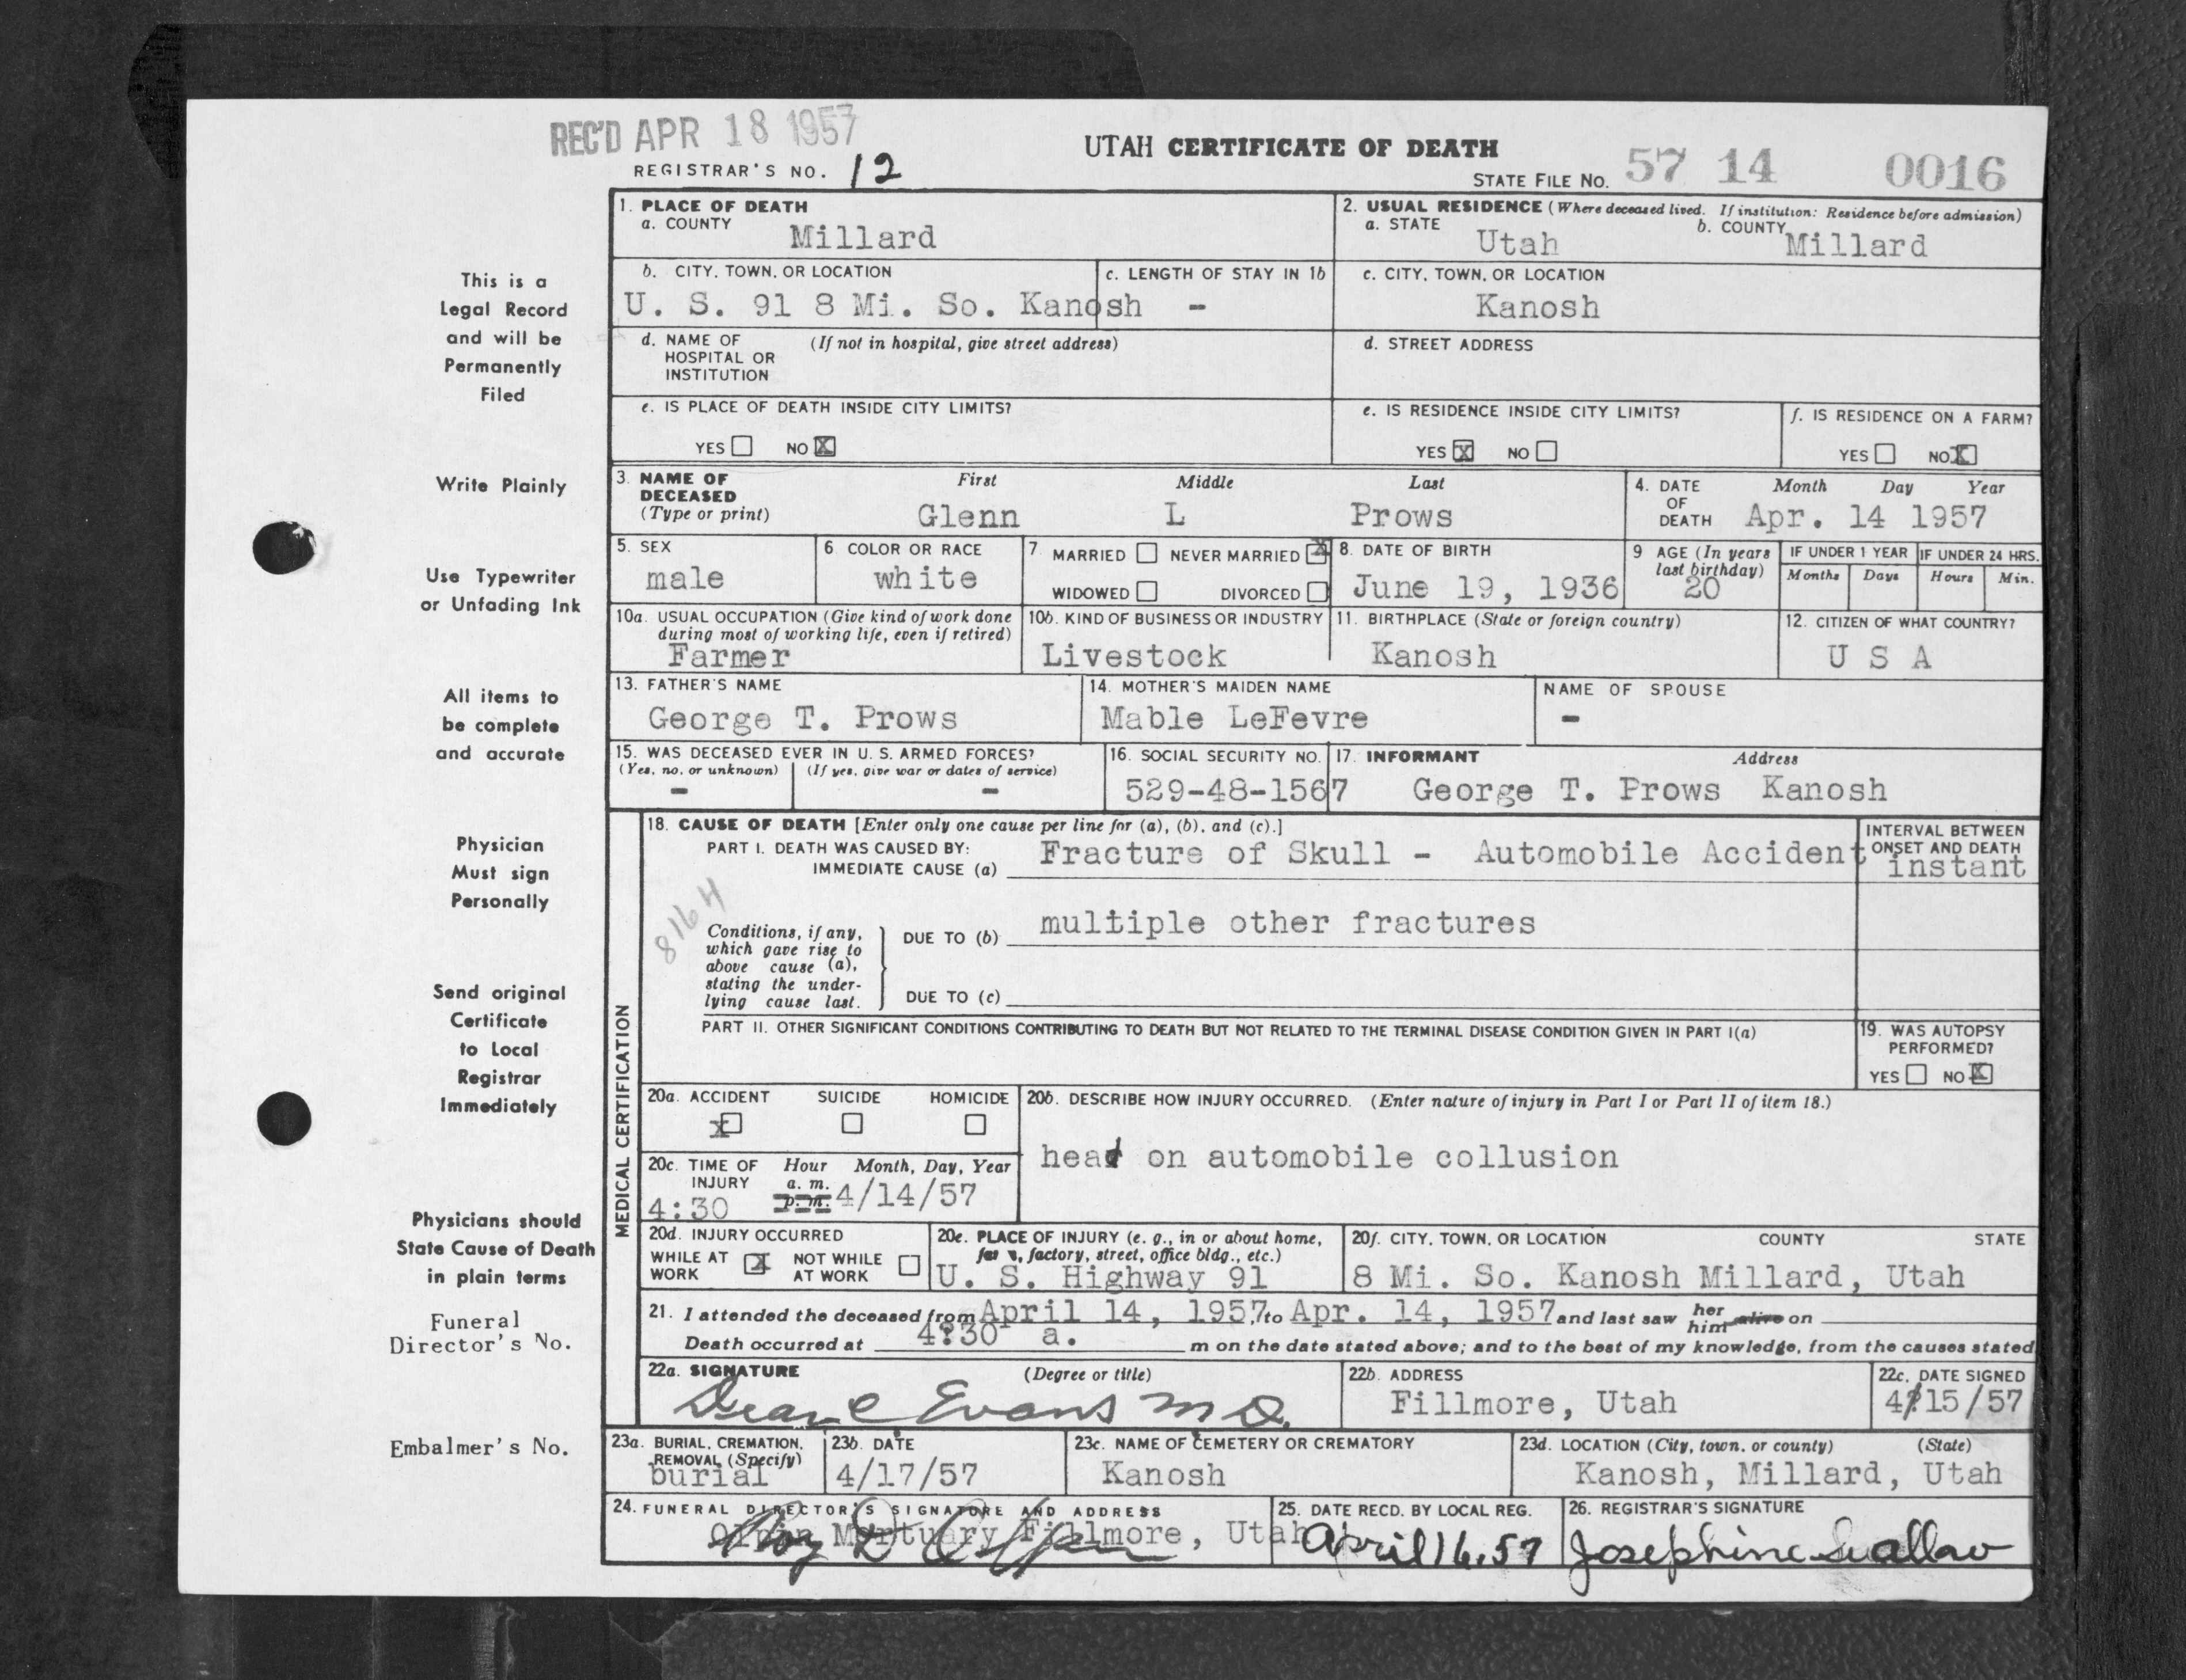 REC'D APR 18 1957
REGISTRAR'S NO. 12
UTAH CERTIFICATE OF DEATH
STATE FILE NO. 57 14 0016
This is a
Legal Record
and will be
Permanently
Filed
Write Plainly
Use Typewriter
or Unfading Ink
All items to
be complete
and accurate
Physician
Must sign
Personally
Send original
Certificate
to Local
Registrar
Immediately
Physicians should
State Cause of Death
in plain terms
Funeral
Director's No.
Embalmer's No.
1. PLACE OF DEATH
a. COUNTY Millard
2. USUAL RESIDENCE (Where deceased lived. If institution: Residence before admission)
a. STATE Utah b. COUNTY Millard
b. CITY, TOWN, OR LOCATION
U. S. 91 8 Mi. So. Kanosh
c. LENGTH OF STAY IN 1b
-
c. CITY, TOWN, OR LOCATION
Kanosh
d. NAME OF (If not in hospital, give street address)
HOSPITAL OR
INSTITUTION
d. STREET ADDRESS
e. IS PLACE OF DEATH INSIDE CITY LIMITS?
YES NO X
e. IS RESIDENCE INSIDE CITY LIMITS?
YES X NO
f. IS RESIDENCE ON A FARM?
YES NO X
3. NAME OF DECEASED (Type or print)
First Middle Last
Glenn L Prows
4. DATE OF DEATH Month Day Year
Apr. 14 1957
5. SEX
male
6. COLOR OR RACE
white
7. MARRIED NEVER MARRIED X
WIDOWED DIVORCED
8. DATE OF BIRTH
June 19, 1936
9 AGE (In years last birthday)
20
IF UNDER 1 YEAR IF UNDER 24 HRS.
Months Days Hours Min.
10a. USUAL OCCUPATION (Give kind of work done
during most of working life, even if retired)
Farmer
10b. KIND OF BUSINESS OR INDUSTRY
Livestock
11. BIRTHPLACE (State or foreign country)
Kanosh
12. CITIZEN OF WHAT COUNTRY?
U S A
13. FATHER'S NAME
George T. Prows
14. MOTHER'S MAIDEN NAME
Mable LeFevre
NAME OF SPOUSE
-
15. WAS DECEASED EVER IN U. S. ARMED FORCES?
(Yes, no, or unknown) (If yes, give war or dates of service)
- -
16. SOCIAL SECURITY NO.
529-48-1567
17. INFORMANT Address
George T. Prows Kanosh
MEDICAL CERTIFICATION
18. CAUSE OF DEATH [Enter only one cause per line for (a), (b), and (c).]
PART I. DEATH WAS CAUSED BY:
IMMEDIATE CAUSE (a) Fracture of Skull - Automobile Accident
INTERVAL BETWEEN
ONSET AND DEATH
instant
8164
Conditions, if any,
which gave rise to
above cause (a),
stating the under-
lying cause last.
DUE TO (b) multiple other fractures
DUE TO (c)
PART II. OTHER SIGNIFICANT CONDITIONS CONTRIBUTING TO DEATH BUT NOT RELATED TO THE TERMINAL DISEASE CONDITION GIVEN IN PART I(a)
19. WAS AUTOPSY
PERFORMED?
YES NO X
20a. ACCIDENT SUICIDE HOMICIDE
X
20b. DESCRIBE HOW INJURY OCCURRED. (Enter nature of injury in Part I or Part II of item 18.)
head on automobile collusion
20c. TIME OF INJURY Hour Month, Day, Year
4:30 a. m. p. m. 4/14/57
20d. INJURY OCCURRED
WHILE AT WORK X NOT WHILE AT WORK
20e. PLACE OF INJURY (e. g., in or about home,
farm, factory, street, office bldg., etc.)
U. S. Highway 91
20f. CITY, TOWN, OR LOCATION COUNTY STATE
8 Mi. So. Kanosh Millard, Utah
21. I attended the deceased from April 14, 1957, to Apr. 14, 1957 and last saw her him alive on
Death occurred at 4:30 a. m on the date stated above; and to the best of my knowledge, from the causes stated
22a. SIGNATURE (Degree or title)
Dean C Evans M D.
22b. ADDRESS
Fillmore, Utah
22c. DATE SIGNED
4/15/57
23a. BURIAL, CREMATION,
REMOVAL (Specify)
burial
23b. DATE
4/17/57
23c. NAME OF CEMETERY OR CREMATORY
Kanosh
23d. LOCATION (City, town, or county) (State)
Kanosh, Millard, Utah
24. FUNERAL DIRECTOR'S SIGNATURE AND ADDRESS
Olpin Mortuary Fillmore, Utah
25. DATE RECD. BY LOCAL REG.
April 16, 57
26. REGISTRAR'S SIGNATURE
Josephine Swallow